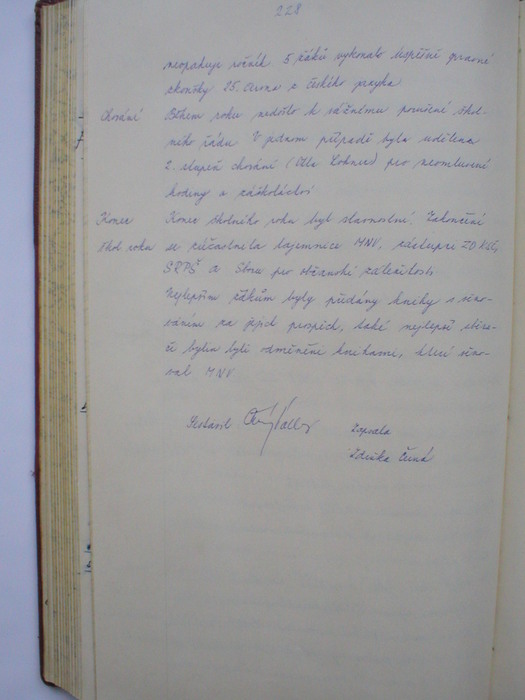 228
neopakuje ročník 5 žáků vykonalo úspěšně opravné
zkoušky 25. června z českého jazyka
Chování Během roku nedošlo k vážnému porušení škol-
ního řádu. V jednom případě byla udělena
2. stupeň chování (Ota Lohner) pro neomluvené
hodiny a záškoláctví
Konec Konec školního roku byl slavnostní. Zakončení
škol. roku se zúčastnila tajemnice MNV, zástupci
SRPŠ a Sboru pro občanské záležitosti.
Nejlepším žákům byly předány knihy s věno-
váním za jejich prospěch, také nejlepší sběra-
či bylin byli odměněni knihami, které věno-
val MNV.
Sestavil
Zapsala
Zdeňka Černá